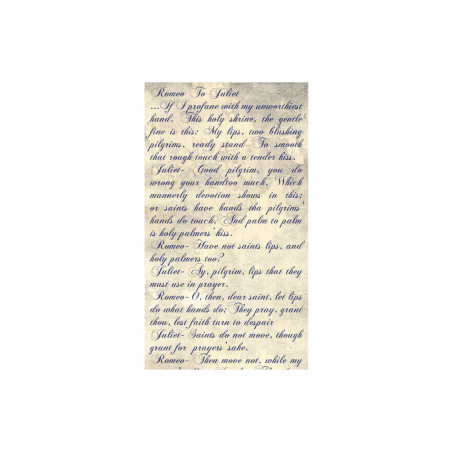 Romeo To Juliet
...If I profane with my unworthiest
hand. This holy shrine, the gentle
fine is this: My lips, two blushing
pilgrims, ready stand To smooth
that rough touch with a tender kiss.
Juliet- Good pilgrim, you do
wrong your handtoo much, Which
mannerly devotion shows in this;
or saints have hands tha pilgrims'
hands do touch, And palm to palm
is holy palmers' kiss.
Romeo- Have not saints lips, and
holy palmers too?
Juliet- Ay, pilgrim, lips that they
must use in prayer.
Romeo- O, then, dear saint, let lips
do what hands do; They pray, grant
thou, lest faith turn to despair
Juliet- Saints do not move, though
grant for prayers' sake.
Romeo- Then move not, while my